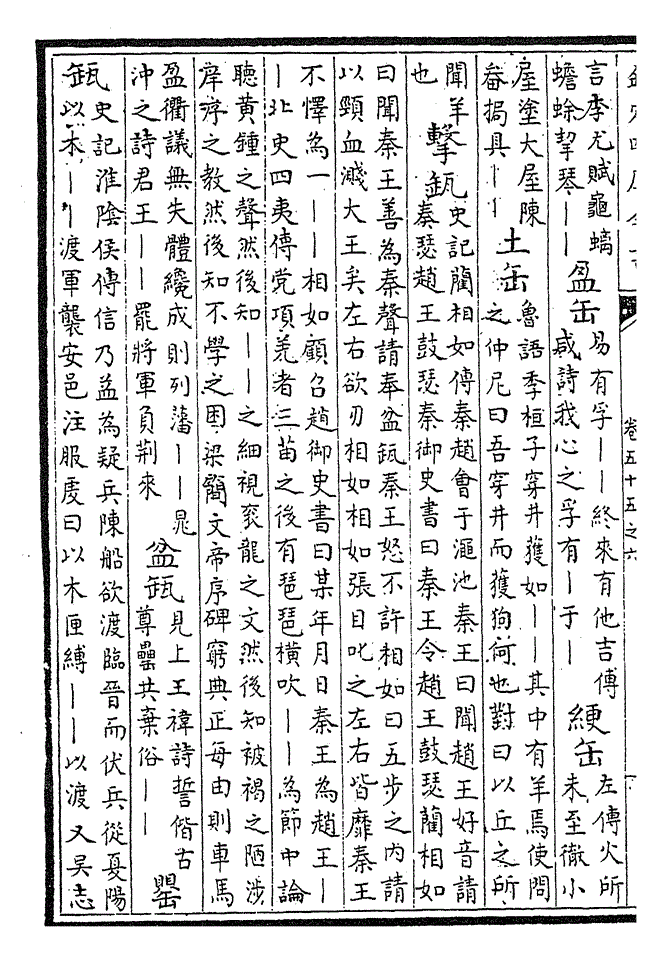 卷五十五之六
言李尤賦龜螭
蟾蜍挈琴——
盈缶
易有孚——終來有他吉傳
咸詩我心之孚有—于—
綆缶
左傳火所
未至徹小
屋塗大屋陳
畚挶具——
土缶
魯語季桓子穿井獲如——其中有羊焉使問
之仲尼曰吾穿井而獲狗何也對曰以丘之所
聞羊
也
擊缻
史記藺相如傳秦趙會于澠池秦王曰聞趙王好音請
奏瑟趙王鼓瑟秦御史書曰秦王令趙王鼓瑟藺相如
曰聞秦王善為秦聲請奉盆缻秦王怒不許相如曰五步之內請
以頸血濺大王矣左右欲刃相如相如張目叱之左右皆靡秦王
不懌為一——相如顧召趙御史書曰某年月日秦王為趙王—
—北史四夷傳党項羌者三苗之後有琵琶橫吹——為節中論
聽黄鍾之聲然後知——之細視衮龍之文然後知被褐之陋涉
庠序之教然後知不學之困梁簡文帝序碑窮典正每由則車馬
盈衢議無失體纔成則列藩——晁
沖之詩君王——罷將軍負荆來
盆缻
見上王禕詩誓偕古
尊罍共棄俗——
罌
缻
史記淮陰侯傳信乃益為疑兵陳船欲渡臨晉而伏兵從夏陽
以木——渡軍襲安邑注服虔曰以木匣縛——以渡 又吳志